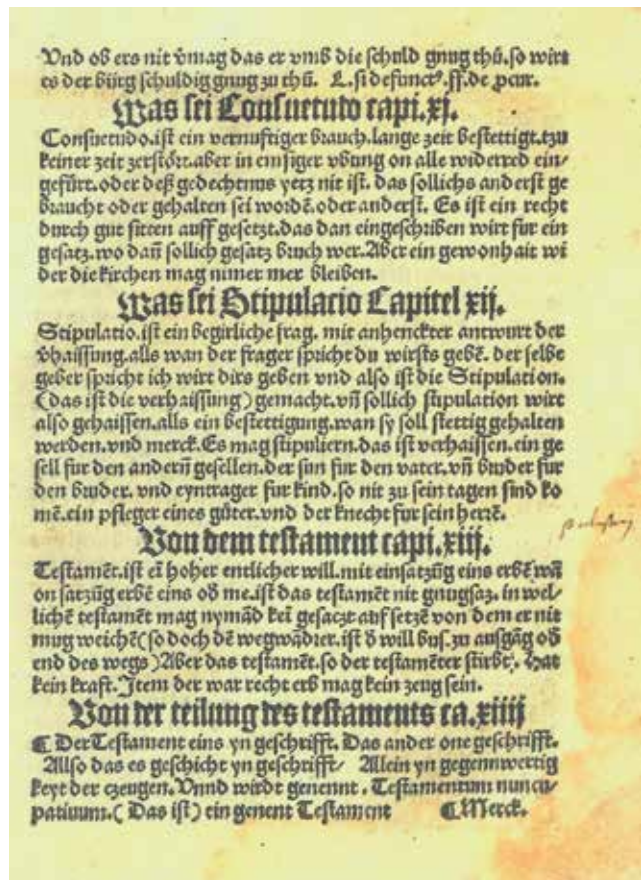 Vnd ob ers nit v̄mag das er vmb die schuld gnug thů.so wirt
es der bürg schuldig gnug zu thů. L.si defunctꝰ.ff.de ꝓcur.
Was sei Consuetudo capi.xj.
Consuetudo.ist ein vernufftiger brauch.lange zeit bestettigt.tzu
keiner zeit zerstört.aber in emsiger vbung on alle widerred ein⸗
gefürt.oder deß gedechtnus yetz nit ist. das sollichs anderst ge
braucht oder gehalten sei wordē.oder anderst. Es ist ein recht
durch gut sitten auff gesetzt.das dan eingeschriben wirt für ein
gesatz.wo dañ sollich gesatz bruch wer.Aber ein gewonhait wi
der die kirchen mag nimer mer bleiben.
Was sei Stipulacio Capitel xij.
Stipulatio.ist ein begirliche frag. mit anhenckter antwurt der
v̄haissung.alls wan der frager spricht du wirsts gebē. der selbe
geber spricht ich wirt dirs geben vnd also ist die Stipulation.
(das ist die verhaissung) gemacht.vñ sollich stipulation wirt
also gehaissen.alls ein bestettigung.wan sy soll stettig gehalten
werden.vnd merck.Es mag stipuliern.das ist verhaissen.ein ge
sell fur den anderñ gesellen.der sun fur den vater.vñ bruder fur
den bruder. vnd eyntrager fur kind.so nit zu sein tagen sind ko
mē.ein pfleger eines güter.vnd der knecht fur sein herrē.
Von dem testament capi.xiij.
Testamēt.ist eī hoher entlicher will.mit einsatzūg eins erbē wañ
on satzūg erbē eins od̄ me.ist das testamēt nit gnugsaz. in wel⸗
lichē testamēt mag nymād keī gesaczt auf setzē von dem er nit
mug weichē(so doch dē wegwādrer.ist d̄ will bus.zu ausgāg od̄
end des wegs)Aber das testamēt.so der testamēter stirbt. hat
kein kraft.Item der war recht erb mag kein zeug sein.
Von der teilung des testaments ca.xiiij
¶ Der Testament eins yn geschrifft. Das ander one geschrifft.
Allso das es geschicht yn geschrifft/ Allein yn gegennwertig
keyt der czeugen.Vnnd wirdt genennt. Testamentum nuncu⸗
patiuum.( Das ist) ein genent Testament ¶Merck.